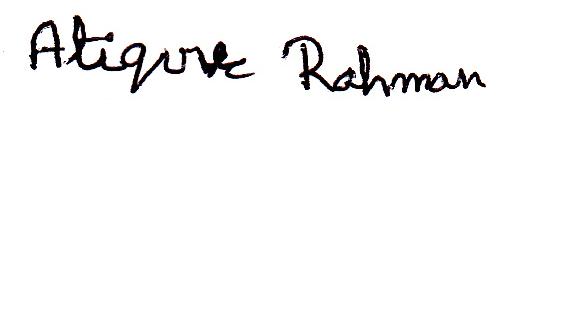 Atiqure Rahman